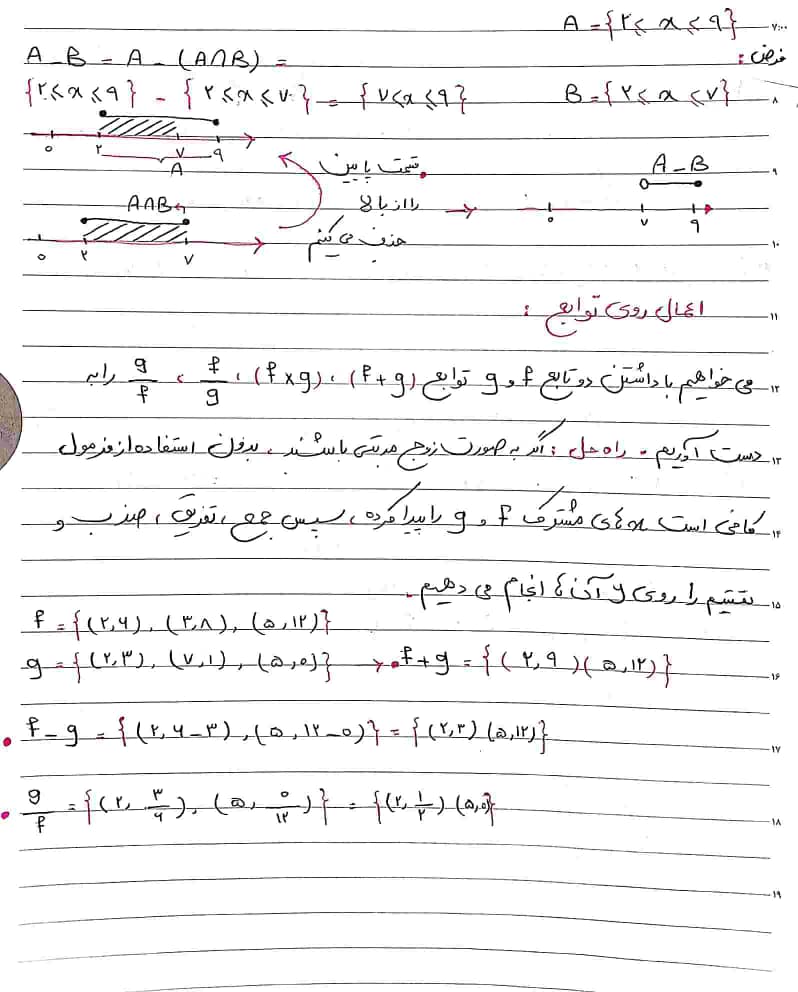 A = {۲ ≤ x ≤ ۹} ۷:۰۰
فرض:
A - B = A - (A∩B) =
{۲ ≤ x ≤ ۹} - {۲ ≤ x ≤ ۷} = {۷ < x ≤ ۹} B = {۲ ≤ x ≤ ۷} ۸
۰ ۲ ۷ ۹
A
قسمت پایین A - B ۹
A∩B را از بالا
۰ ۷ ۹
حذف می کنیم ۱۰
۰ ۲ ۷
اعمال روی توابع : ۱۱
می خواهیم با داشتن دو تابع f و g توابع (f+g) ، (f×g) ، f/g ، g/f را به ۱۲
دست آوریم. راه حل : اگر به صورت زوج مرتبی باشند، بدون استفاده از فرمول ۱۳
کافی است x های مشترک f و g را پیدا کرده، سپس جمع ، تفریق ، ضرب و ۱۴
تقسیم را روی y آن ها انجام می دهیم. ۱۵
f = {(۲,۶), (۳,۸), (۵,۱۲)}
g = {(۲,۳), (۷,۱), (۵,۰)} → f+g = {(۲,۹)(۵,۱۲)} ۱۶
f - g = {(۲,۶-۳), (۵,۱۲-۰)} = {(۲,۳)(۵,۱۲)} ۱۷
g/f = {(۲, ۳/۶), (۵, ۰/۱۲)} = {(۲, ۱/۲)(۵,۰)} ۱۸
۱۹